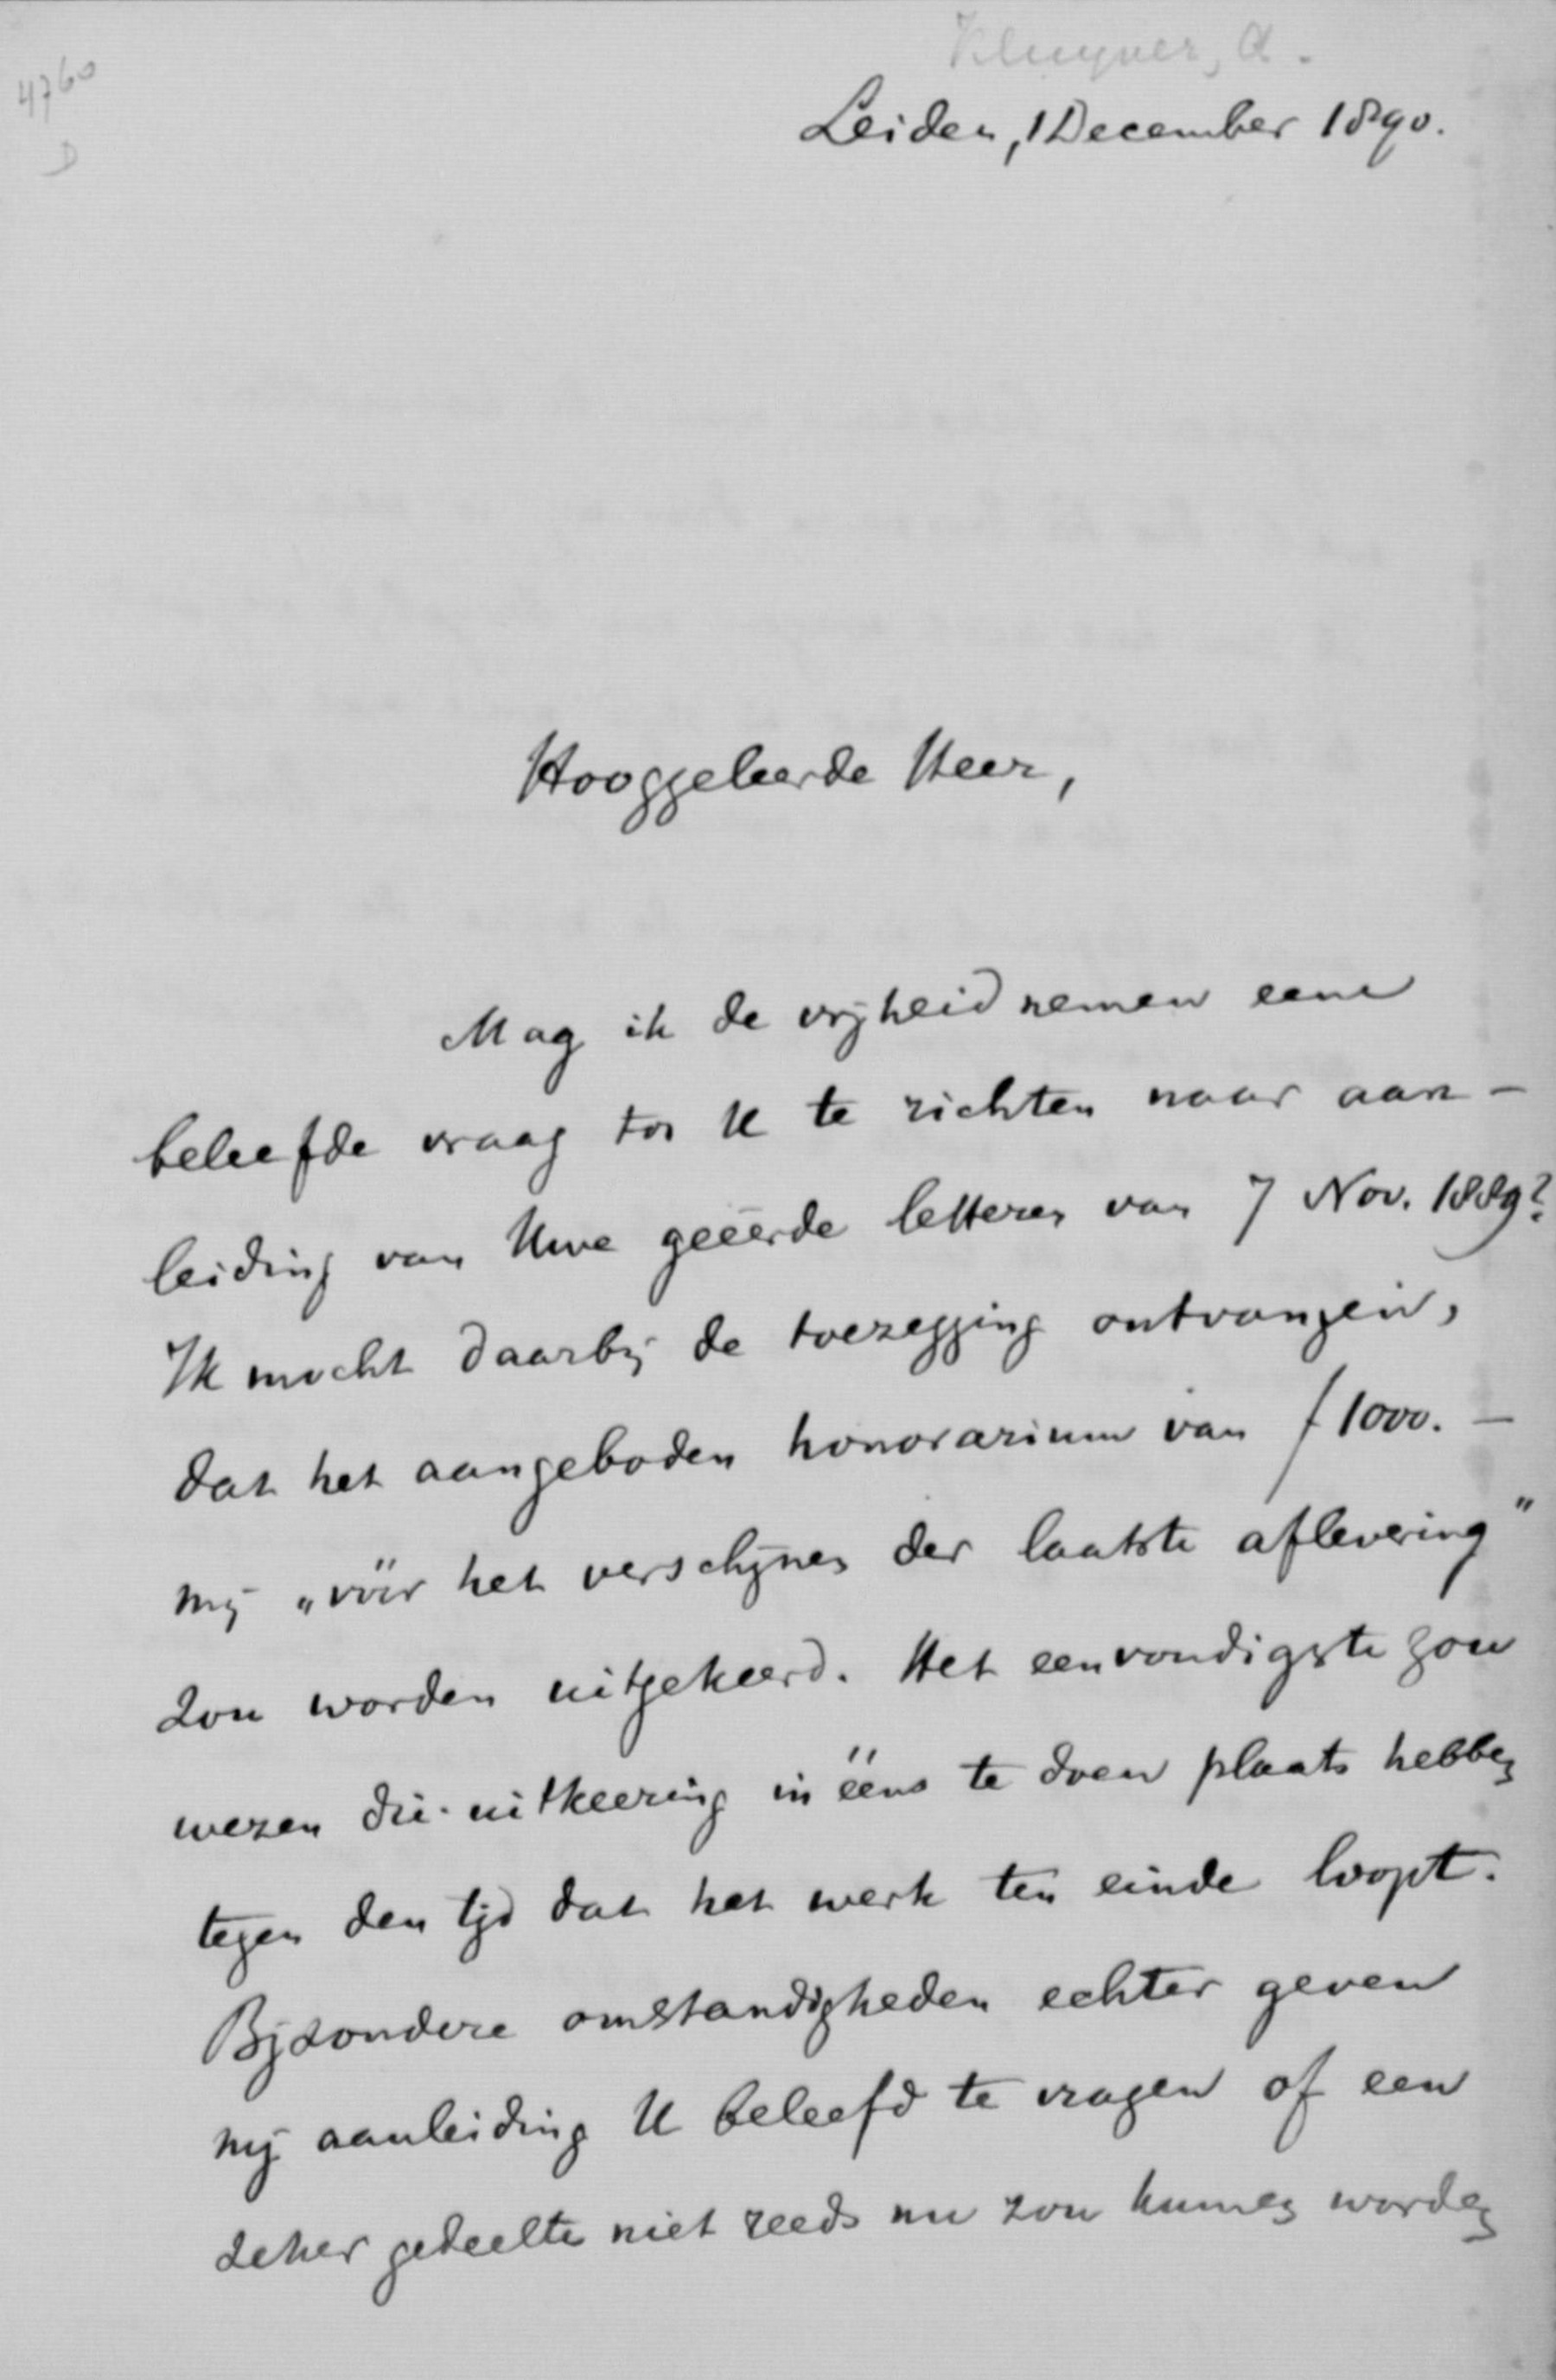 Kluyver, A.
4760
D
Leiden, 1 December 1890.
Hooggeleerde Heer,
Mag ik de vrijheid nemen eene
beleefde vraag tot U te richten naar aan-
leiding van Uwe geëerde letteren van 7 Nov. 1889?
Ik mocht daarbij de toezegging ontvangen,
dat het aangeboden honorarium van ƒ 1000.—
mij „vóór het verschijnen der laatste aflevering”
zou worden uitgekeerd. Het eenvoudigste zou
wezen die uitkeering in ééns te doen plaats hebben
tegen den tijd dat het werk ten einde loopt.
Bijzondere omstandigheden echter geven
mij aanleiding U beleefd te vragen of een
zeker gedeelte niet reeds nu zou kunnen worden